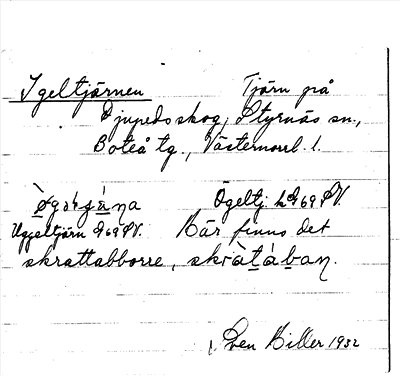 Igeltjärnen Tjärn på
Djupedsskog, Styrnäs sn.,
Boteå tg., Västernorrl. l.
Ögeltj. L æ 69 PV.
Uggeltjärn æ 69 PV. Här finns det
skrattabborre, skràt̲áb̲aŋ.
Sven Hiller 1932